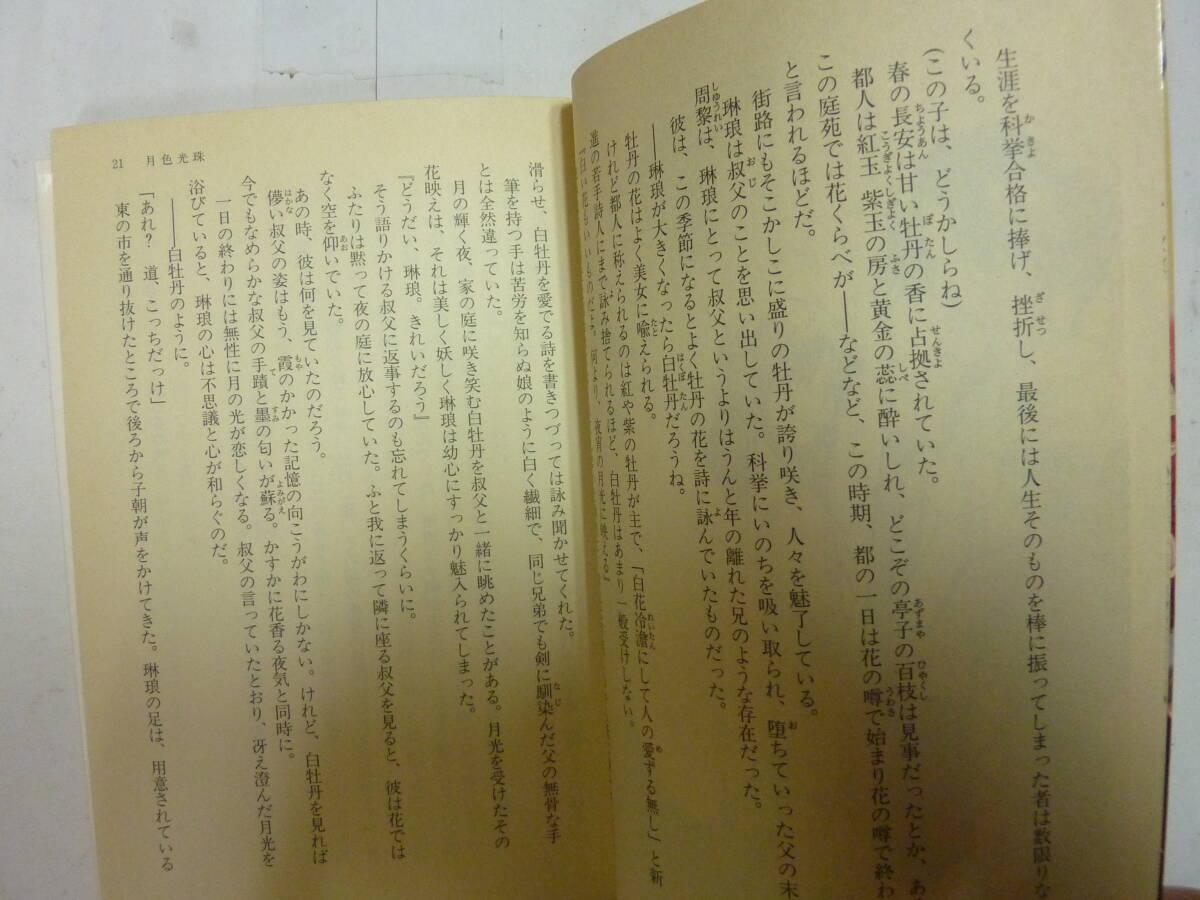 生涯を科挙合格に捧げ、挫折し、最後には人生そのものを棒に振ってしまった者は数限りな
くいる。
(この子は、どうかしらね)
春の長安は甘い牡丹の香に占拠されていた。
都人は紅玉 紫玉の房と黄金の蕊に酔いしれ、どこぞの亭子の百枝は見事だったとか、あ
この庭苑では花くらべが――などなど、この時期、都の一日は花の噂で始まり花の噂で終わ
と言われるほどだ。
街路にもそこかしこに盛りの牡丹が誇り咲き、人々を魅了している。
琳琅は叔父のことを思い出していた。科挙にいのちを吸い取られ、堕ちていった父の末
周黎は、琳琅にとって叔父というよりはうんと年の離れた兄のような存在だった。
彼は、この季節になるとよく牡丹の花を詩に詠んでいたものだった。
――琳琅が大きくなったら白牡丹だろうね。
牡丹の花はよく美女に喩えられる。
けれど都人に称えられるのは紅や紫の牡丹が主で、「白花冷澹にして人の愛ずる無し」と新
進の若手詩人にまで詠み捨てられるほど、白牡丹はあまり一般受けしない。
『白い花もいいものだよ。何より、夜宵の月光に映える』
滑らせ、白牡丹を愛でる詩を書きつづっては詠み聞かせてくれた。
筆を持つ手は苦労を知らぬ娘のように白く繊細で、同じ兄弟でも剣に馴染んだ父の無骨な手
とは全然違っていた。
月の輝く夜、家の庭に咲き笑む白牡丹を叔父と一緒に眺めたことがある。月光を受けたその
花映えは、それは美しく妖しく琳琅は幼心にすっかり魅入られてしまった。
『どうだい、琳琅。きれいだろう』
そう語りかける叔父に返事するのも忘れてしまうくらいに。
ふたりは黙って夜の庭に放心していた。ふと我に返って隣に座る叔父を見ると、彼は花では
なく空を仰いでいた。
あの時、彼は何を見ていたのだろう。
儚い叔父の姿はもう、霞のかかった記憶の向こうがわにしかない。けれど、白牡丹を見れば
今でもなめらかな叔父の手蹟と墨の匂いが蘇る。かすかに花香る夜気と同時に。
一日の終わりには無性に月の光が恋しくなる。叔父の言っていたとおり、冴え澄んだ月光を
浴びていると、琳琅の心は不思議と心が和らぐのだ。
――白牡丹のように。
「あれ？ 道、こっちだっけ」
東の市を通り抜けたところで後ろから子朝が声をかけてきた。琳琅の足は、用意されている
21 月色光珠